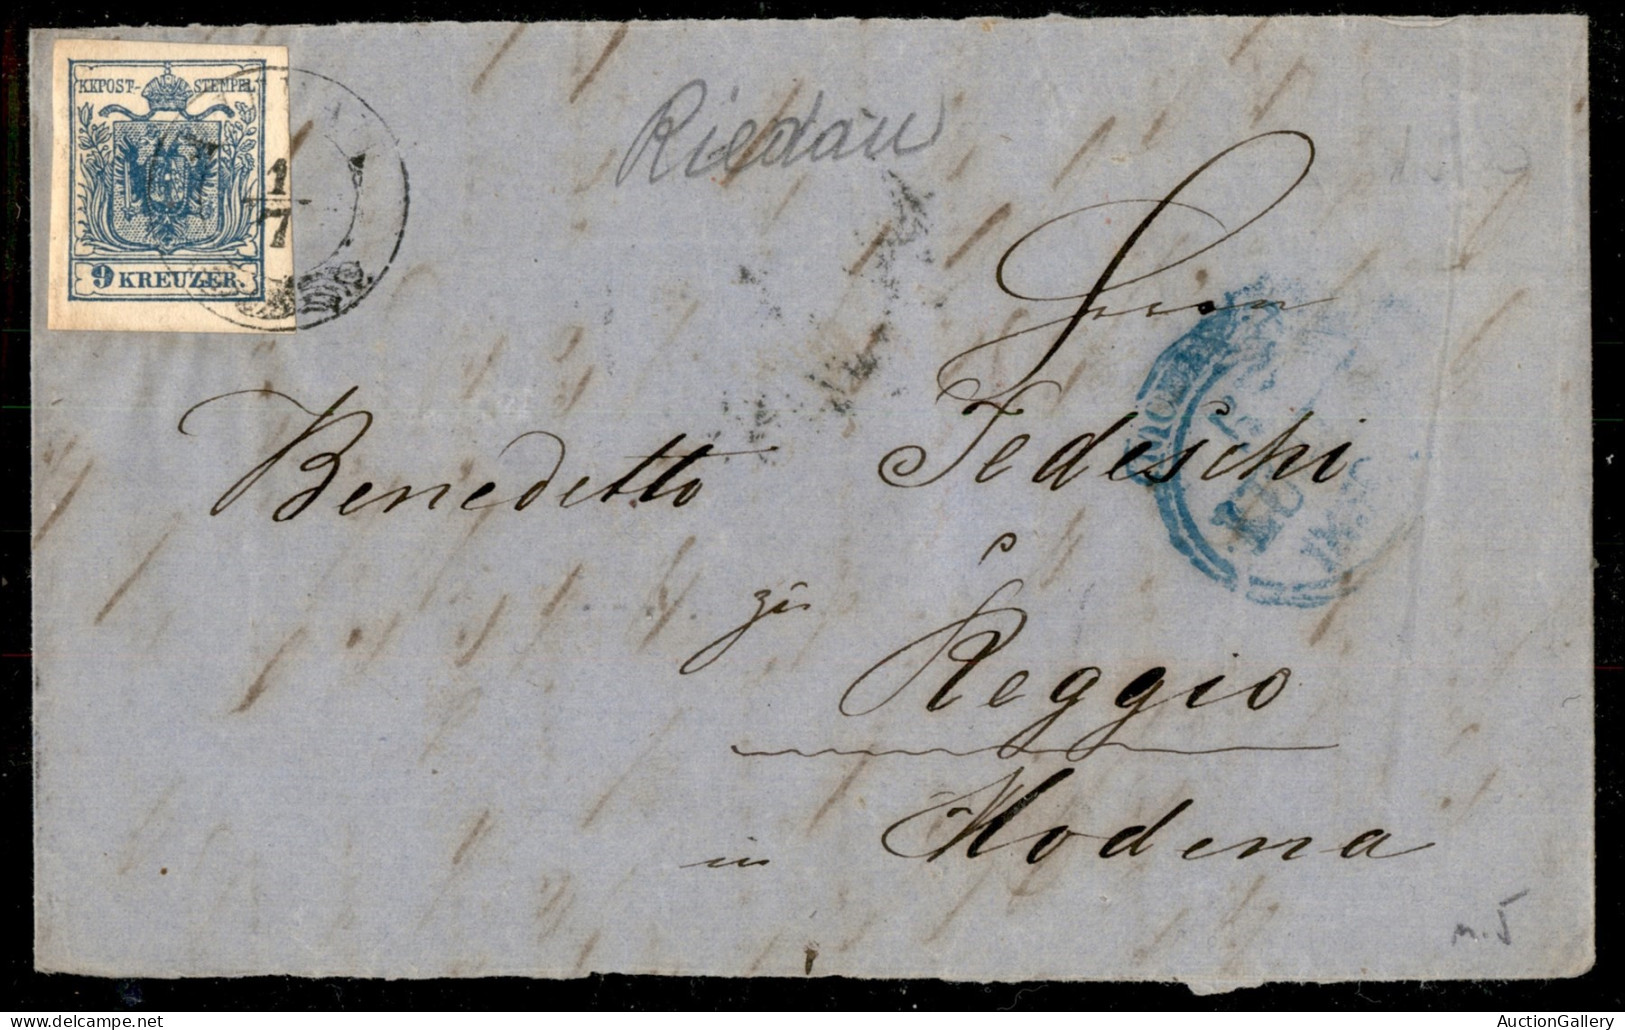 KKPOST-STEMPEL
9 KREUZER.
1
7
Riedau
Herrn
Benedetto Tedeschi
zu
Reggio
in Modena
LUG
n. 5
AuctionGallery